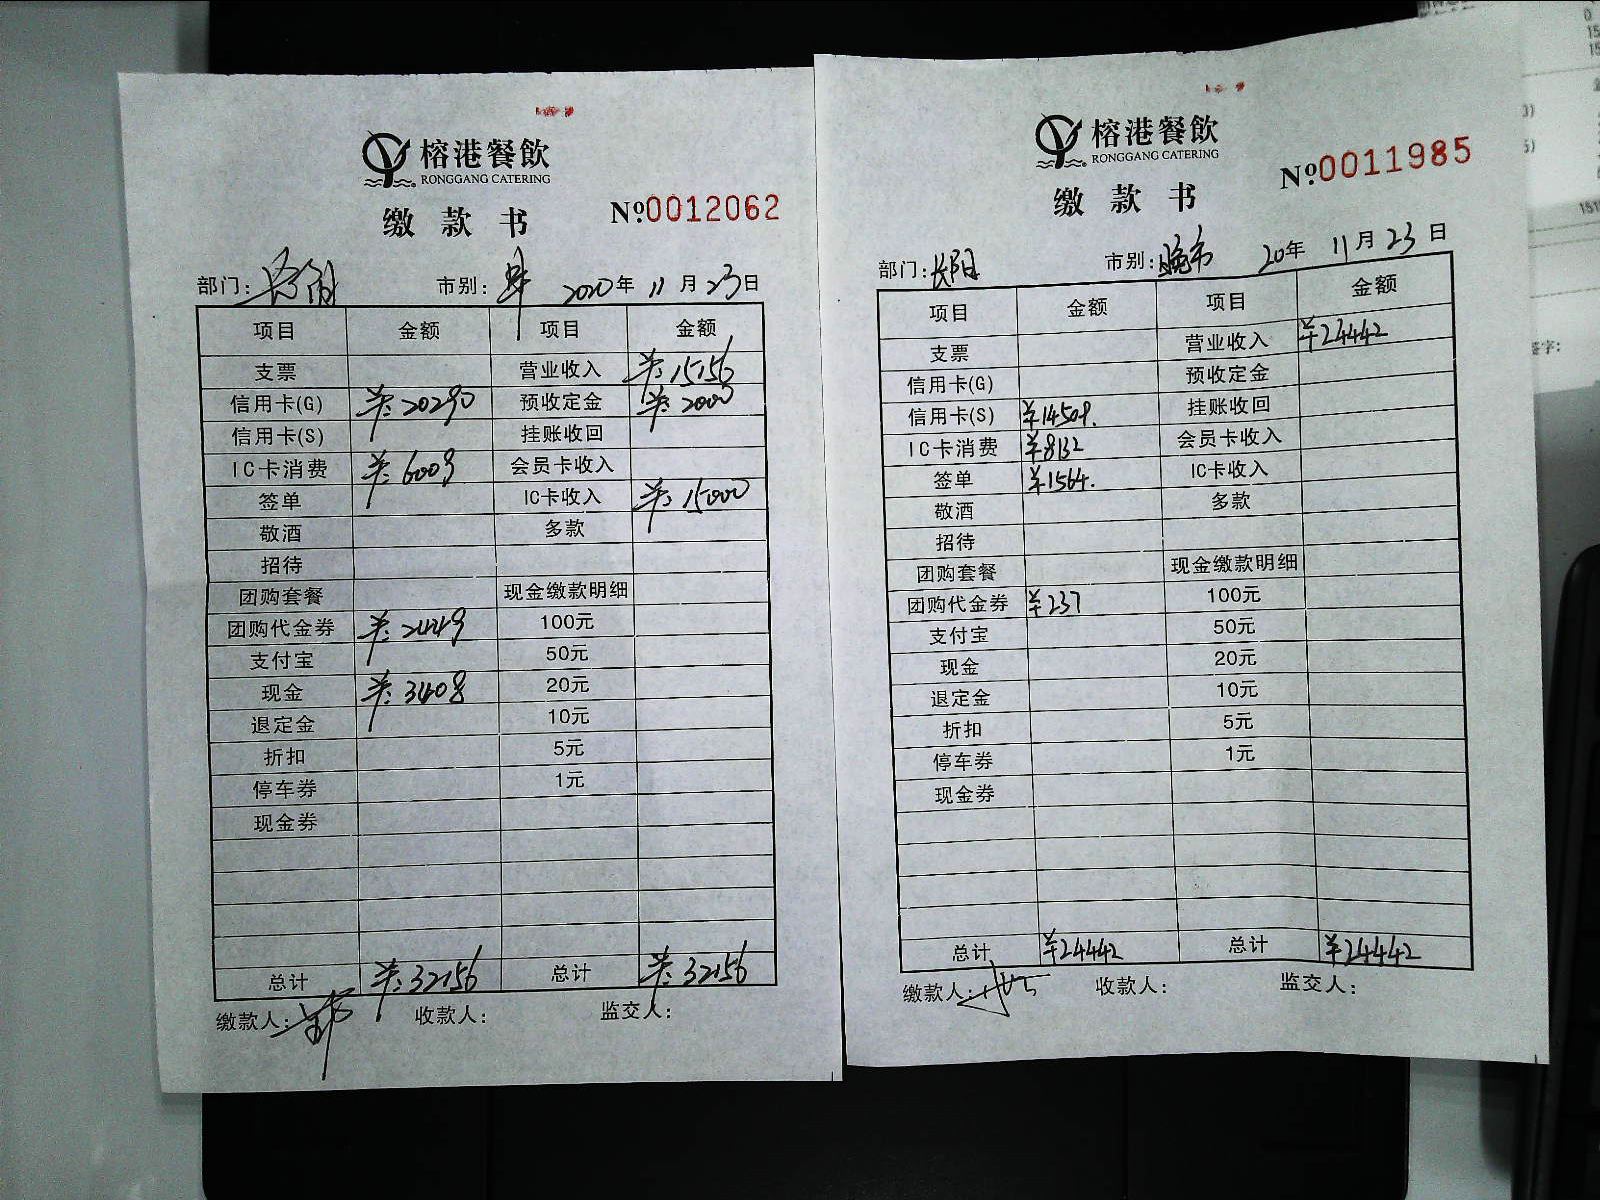 榕港餐飲
RONGGANG CATERING
缴款书 №0012062
部门: 市别: 2020年 11月 23日
项目 金额 项目 金额
支票 营业收入 ¥:15156
信用卡(G) ¥:20290 预收定金 ¥:2000
信用卡(S) 挂账收回
IC卡消费 ¥:6009 会员卡收入
签单 IC卡收入 ¥:15000
敬酒 多款
招待
团购套餐 现金缴款明细
团购代金券 ¥:2449 100元
支付宝 50元
现金 ¥:3408 20元
退定金 10元
折扣 5元
停车券 1元
现金券
总计 ¥:32156 总计 ¥:32156
缴款人: 收款人: 监交人:
榕港餐飲
RONGGANG CATERING
缴款书 №0011985
部门:长阳 市别:晚市 20年 11月 23日
项目 金额 项目 金额
支票 营业收入 ¥24442
信用卡(G) 预收定金
信用卡(S) ¥14509. 挂账收回
IC卡消费 ¥8132 会员卡收入
签单 ¥1564. IC卡收入
敬酒 多款
招待
团购套餐 现金缴款明细
团购代金券 ¥237 100元
支付宝 50元
现金 20元
退定金 10元
折扣 5元
停车券 1元
现金券
总计 ¥24442 总计 ¥24442
缴款人: 收款人: 监交人: